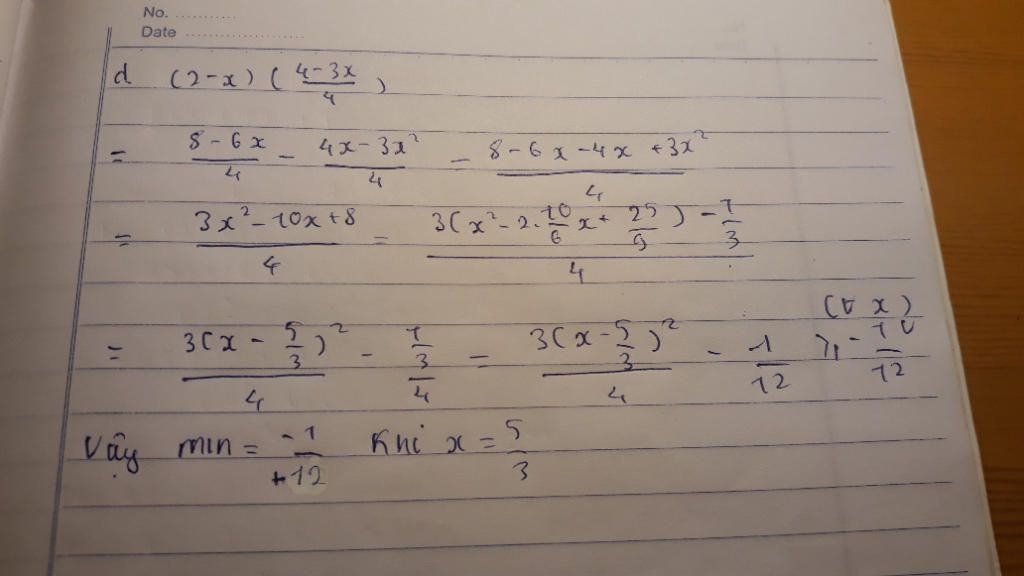 No. ............
Date ........................
d (2-x) ( \frac{4-3x}{4} )
= \frac{8-6x}{4} - \frac{4x-3x^2}{4} = \frac{8-6x-4x+3x^2}{4}
= \frac{3x^2-10x+8}{4} = \frac{3(x^2-2.\frac{10}{6}x+\frac{25}{9})-\frac{1}{3}}{4}
= \frac{3(x-\frac{5}{3})^2}{4} - \frac{\frac{1}{3}}{4} = \frac{3(x-\frac{5}{3})^2}{4} - \frac{1}{12} ≥ -\frac{1}{12} (∀ x)
Vậy min = \frac{-1}{+12} Khi x = \frac{5}{3}